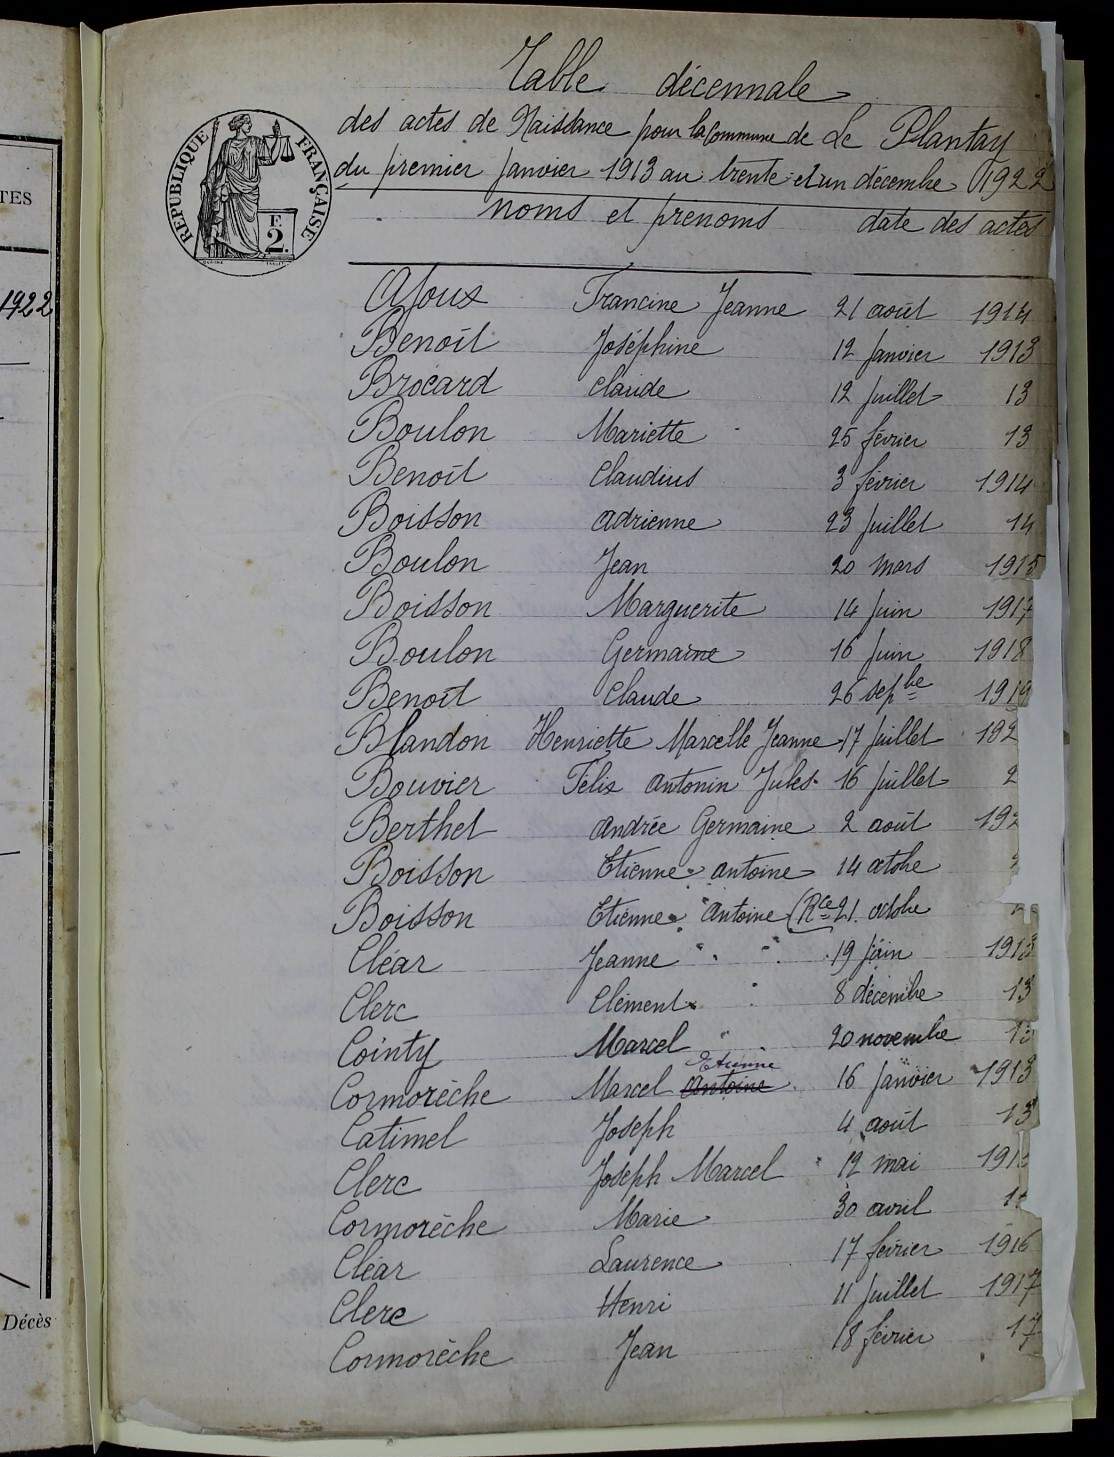 Table décennale
des actes de Naissance pour la Commune de Le Plantay
du premier Janvier 1913 au trente et un décembre 1922
noms et prénoms date des actes
RÉPUBLIQUE FRANÇAISE
F.
2.
TES
1922
Décès
Ajoux Francine Jeanne 21 août 1914
Benoît Joséphine 12 Janvier 1913
Brocard Claude 12 Juillet 13
Boulon Mariette 25 février 13
Benoît Claudius 3 février 1914
Boisson Adrienne 23 Juillet 14
Boulon Jean 20 mars 1915
Boisson Marguerite 14 Juin 1917
Boulon Germaine 16 Juin 1918
Benoît Claude 26 sepbe 1919
Blandon Henriette Marcelle Jeanne 17 Juillet 192
Bouvier Félix Antonin Jules 16 Juillet 2
Berthet Andrée Germaine 2 août 192
Boisson Etienne Antoine 14 octobre
Boisson Etienne Antoine (Rce 21 octobre
Cléar Jeanne 19 Juin 1913
Clerc Clément 8 décembre 13
Cointy Marcel 20 novembre 13
Etienne
Cormorèche Marcel Antoine 16 Janvier 1913
Catimel Joseph 4 août 13
Clerc Joseph Marcel 12 mai 191
Cormorèche Marie 30 avril 1
Cléar Laurence 17 février 1916
Clerc Henri 11 Juillet 1917
Cormorèche Jean 18 février 17